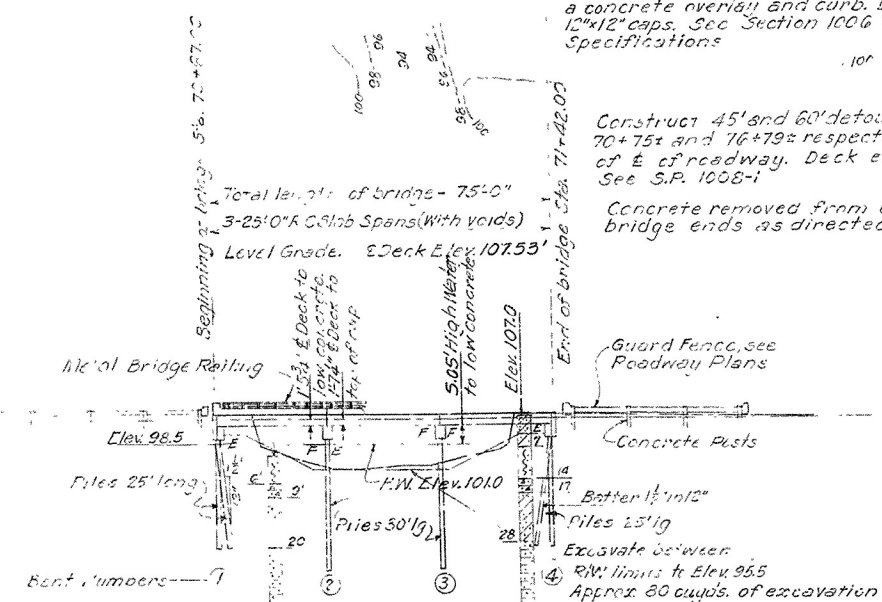 a concrete overlay and curb.
12"x12" caps. See Section 1006
Specifications
Construct 45' and 60' detou
70+75± and 76+79± respect
of ₵ of roadway. Deck e
See S.P. 1008-1
Concrete removed from
bridge ends as directed
Beginning of bridge Sta. 70+67.00
100 98 96
94
94 96 98 100
End of bridge Sta. 71+42.00
Total length of bridge - 75'-0"
3-25'0" R.C. Slab Spans (With voids)
Level Grade. ₵ Deck Elev. 107.53'
₵ Deck to
low concrete.
₵ Deck to
top of cap
5.05' High Water
to low concrete
Elev. 107.0
Metal Bridge Railing
Guard Fence, see
Roadway Plans
Elev. 98.5
E F E F F E
Concrete Posts
H.W. Elev. 101.0
Piles 25' long
6'
9'
20
Piles 30' lg
28
14
17
Batter 1½" in 12"
Piles 25' lg
Excavate between
R/W limits to Elev. 95.5
Approx. 80 cu.yds. of excavation
Bent Numbers 1 2 3 4